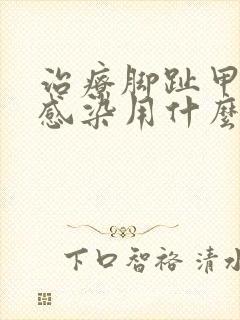 治療脚趾甲
感染用什麼
下口智裕 清水